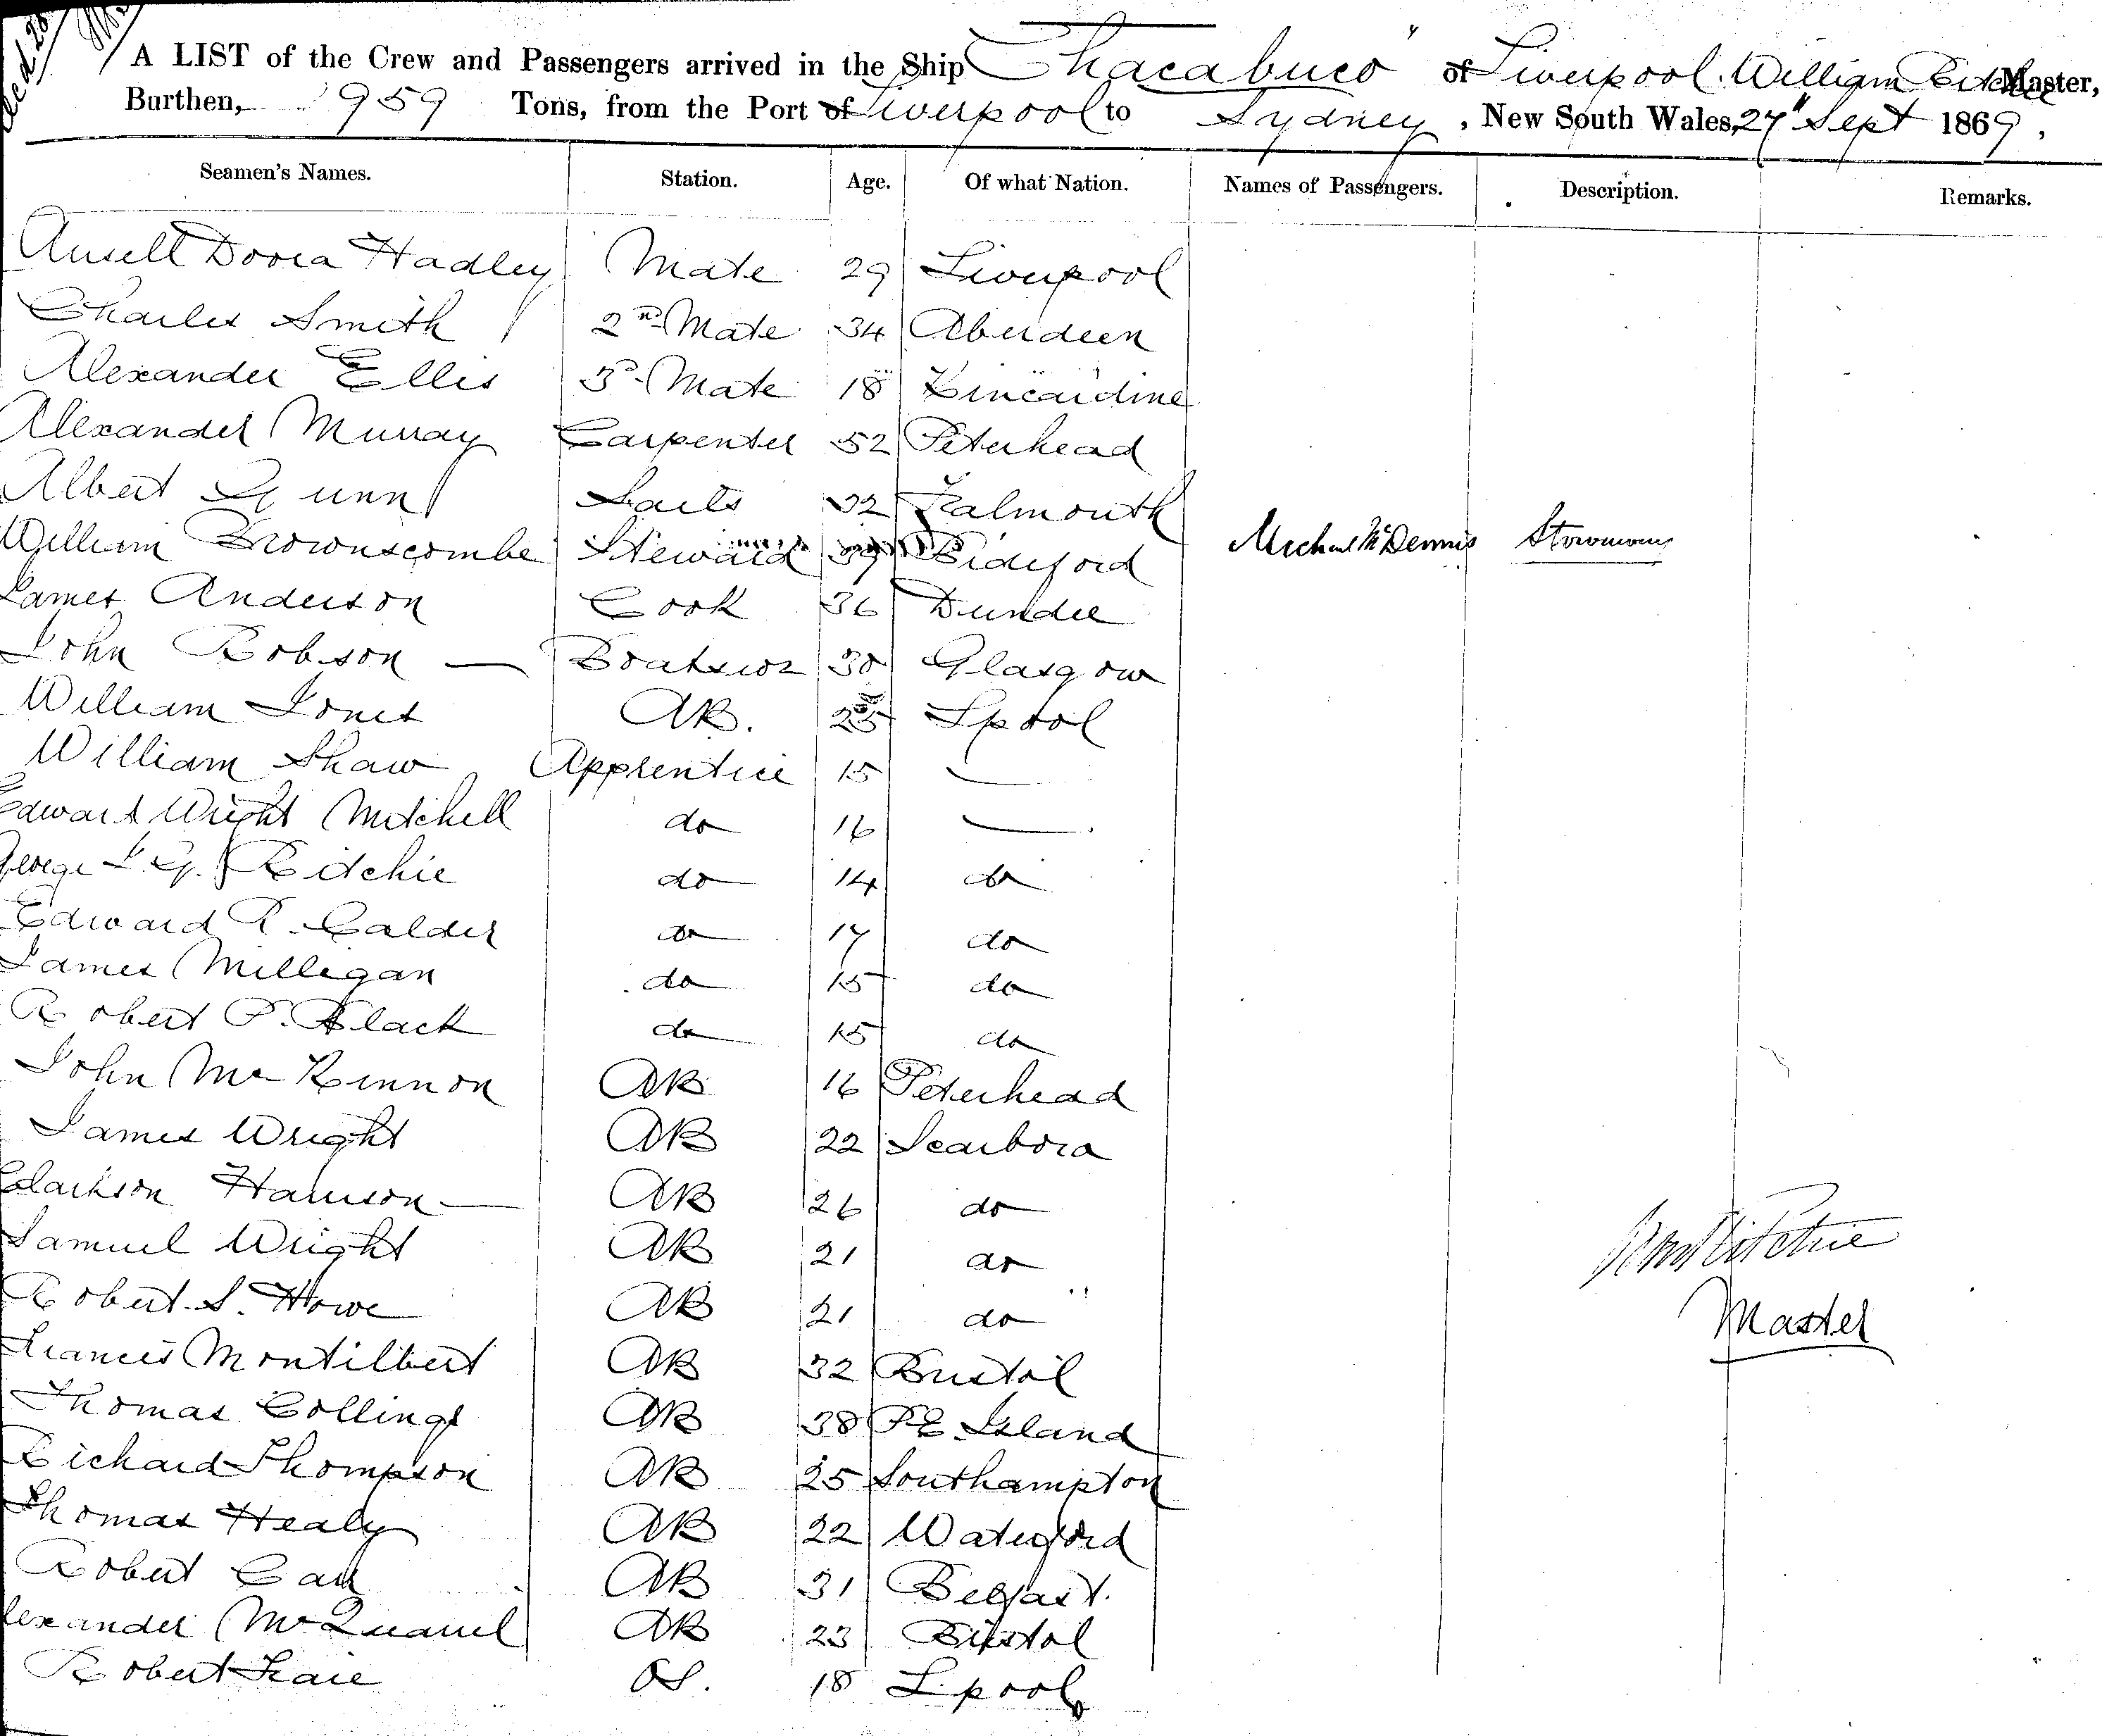 A LIST of the Crew and Passengers arrived in the Ship "Chacabuco" of Liverpool. William Ritchie Master,
Burthen, 959 Tons, from the Port of Liverpool to Sydney, New South Wales, 27" Sept 1869.
Seamen's Names. Station. Age. Of what Nation. Names of Passengers. Description. Remarks.
Ansell Hadley Mate 29 Liverpool
Charles Smith 2nd Mate 34 Aberdeen
Alexander Ellis 3d Mate 18 Kincardine
Alexander Murray Carpenter 52 Peterhead
Albert Gunn Sails 32 Falmouth
William Brownscombe Steward 39 Bideford Michael McDermis
James Anderson Cook 36 Dundee
John Robson — Boatswn 30 Glasgow
William Jones AB. 25 Lpool
William Shaw Apprentice 15 —
Edward Wright Mitchell do 16 —
George Ritchie do 14 do
Edward R. Calder do 17 do
James Milligan do 15 do
Robert P. Black do 15 do
John McKinnon AB 16 Peterhead
James Wright AB 22 Scarboro
Clarkson Harrison — AB 26 do
Samuel Wright AB 21 do
Robert S. Howe AB 21 do
Wm Ritchie
Master
Francis Montilbert AB 32 Bristol
Thomas Collings AB 38 P.E. Island
Richard Thompson AB 25 Southampton
Thomas Healy AB 22 Waterford
Robert Carr AB 31 Belfast.
Alexander McQuarrel AB 23 Bristol
Robert OS. 18 L.pool